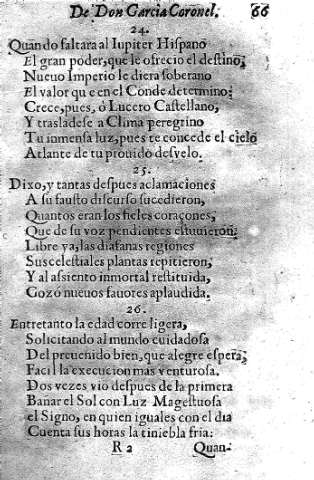 De Don Garcia Coronel. 66
24.
Quando faltara al Iupiter Hispano
El gran poder, que le ofrecio el destino,
Nueuo Imperio le diera soberano
El valor que en el Conde determino:
Crece, pues, ò Lucero Castellano,
Y trasladese a Clima peregrino
Tu inmensa luz, pues te concede el cielo
Atlante de tu prouido desvelo.
25.
Dixo, y tantas despues aclamaciones
A su fausto discurso sucedieron,
Quantos eran los fieles coraçones,
Que de su voz pendientes estuuieron:
Libre ya, las diafanas regiones
Sus celestiales plantas repitieron,
Y al assiento inmortal restituida,
Gozò nueuos fauores aplaudida.
26.
Entretanto la edad corre ligera,
Solicitando al mundo cuidadosa
Del preuenido bien, que alegre espera,
Facil la execucion mas venturosa.
Dos vezes vio despues de la primera
Bañar el Sol con Luz Magestuosa
el Signo, en quien iguales con el dia
Cuenta sus horas la tiniebla fria:
R 2 Quan-